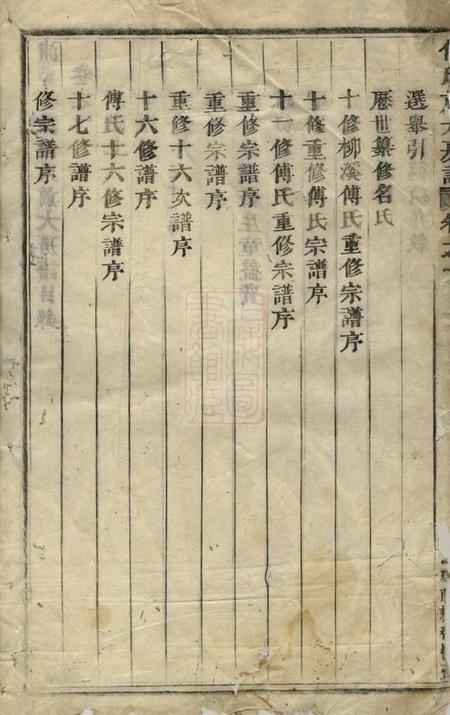 選舉引
歷世纂修名氏
十修柳溪傅氏重修宗譜序
十修重修傅氏宗譜序
十一修傅氏重修宗譜序
重修宗譜序
重修宗譜序
重修十六次譜序
十六修譜序
傅氏十六修宗譜序
十七修譜序
修宗譜序